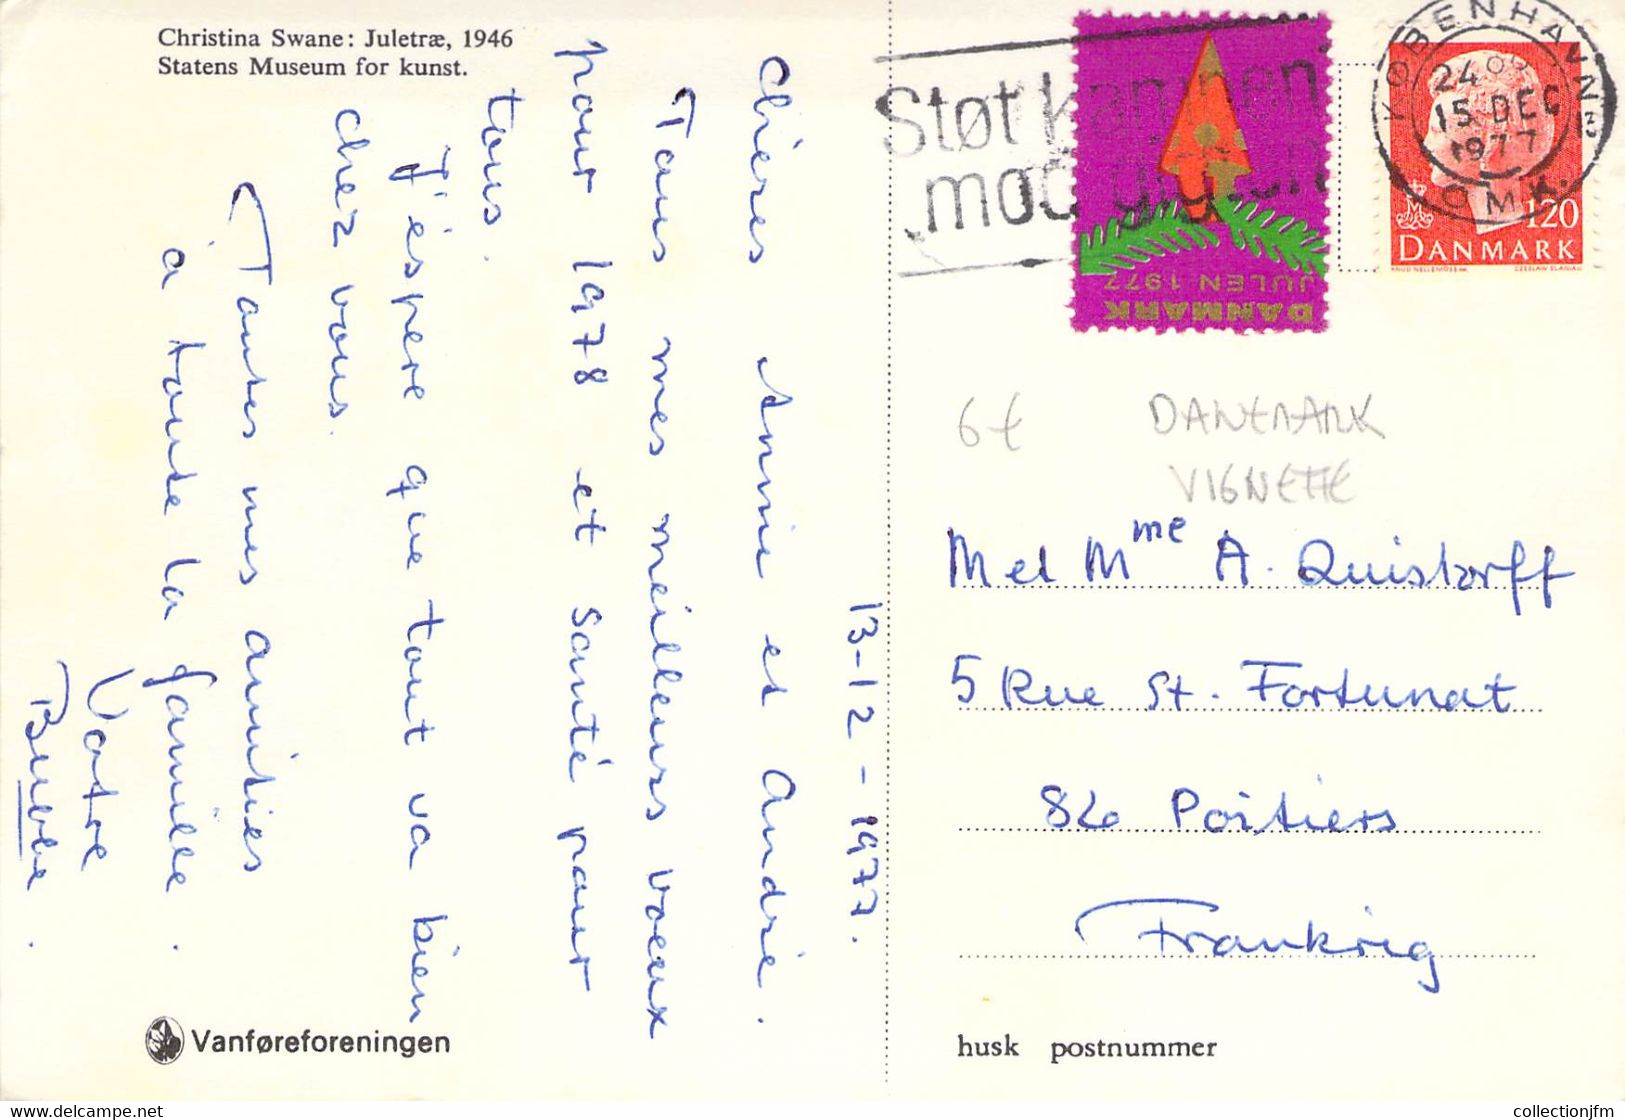 Christina Swane: Juletræ, 1946
Statens Museum for kunst.
13-12-1977.
Chères Annie et André.
Tous mes meilleurs voeux
pour 1978 et santé pour
tous.
J'éspère que tout va bien
chez vous.
Toutes mes amitiés
à toute la famille.
Votre
Bubbe.
Vanføreforeningen
Støt kampen
mod gigten
DANMARK
JULEN 1977
KØBENHAVN
24
15 DEC
1977
OMK.
120
DANMARK
6€
DANEMARK
VIGNETTE
M et Mme A. Quistorff
5 Rue St. Fortunat
86 Poitiers
Frankrig
husk postnummer
collectionjfm